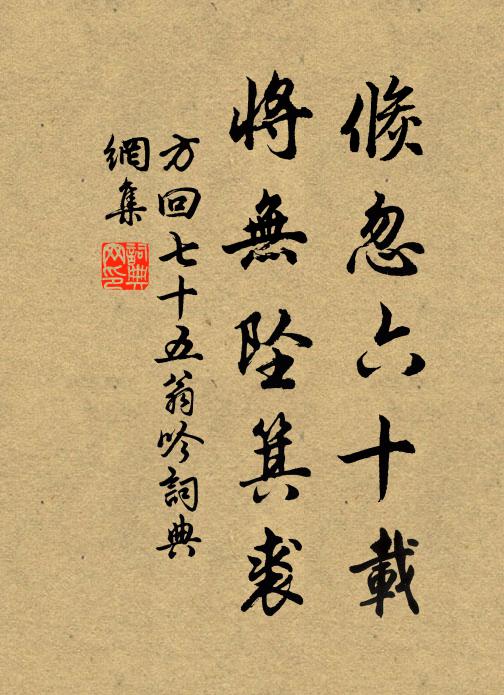 倏忽六十載
將無墜箕裘
方回七十五翁吟詞典
網集
詞典網印